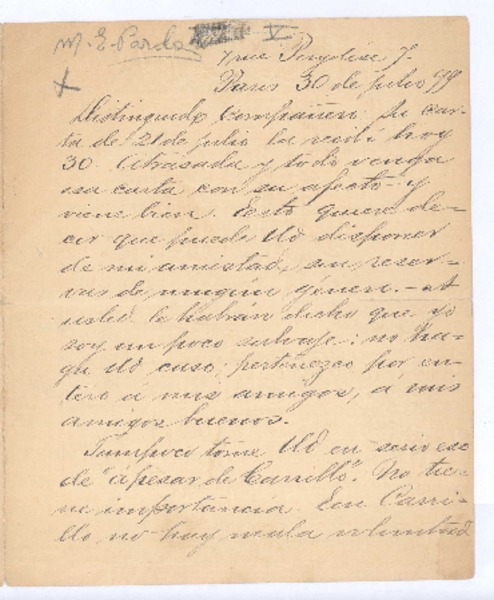 M. E. Pardo
V
7 rue Pergolèse 7.
Paris 30 de julio 99
Distinguido compañero: su car-
ta de 21 de julio la recibí hoy
30. Atrasada y todo venga
esa carta con su afecto y
viene bien. Esto quiere de-
cir que puede Ud disponer
de mi amistad, sin reser-
vas de ningún género.- A
usted le habrán dicho que yo
soy un poco salvaje: no ha-
ga Ud caso; pertenezco por en-
tero á mis amigos, á mis
amigos buenos.
Tampoco tome Ud en serio eso
de "apesar de Carrillo". No tie-
ne importancia. Con Carri-
llo no hay mala voluntad